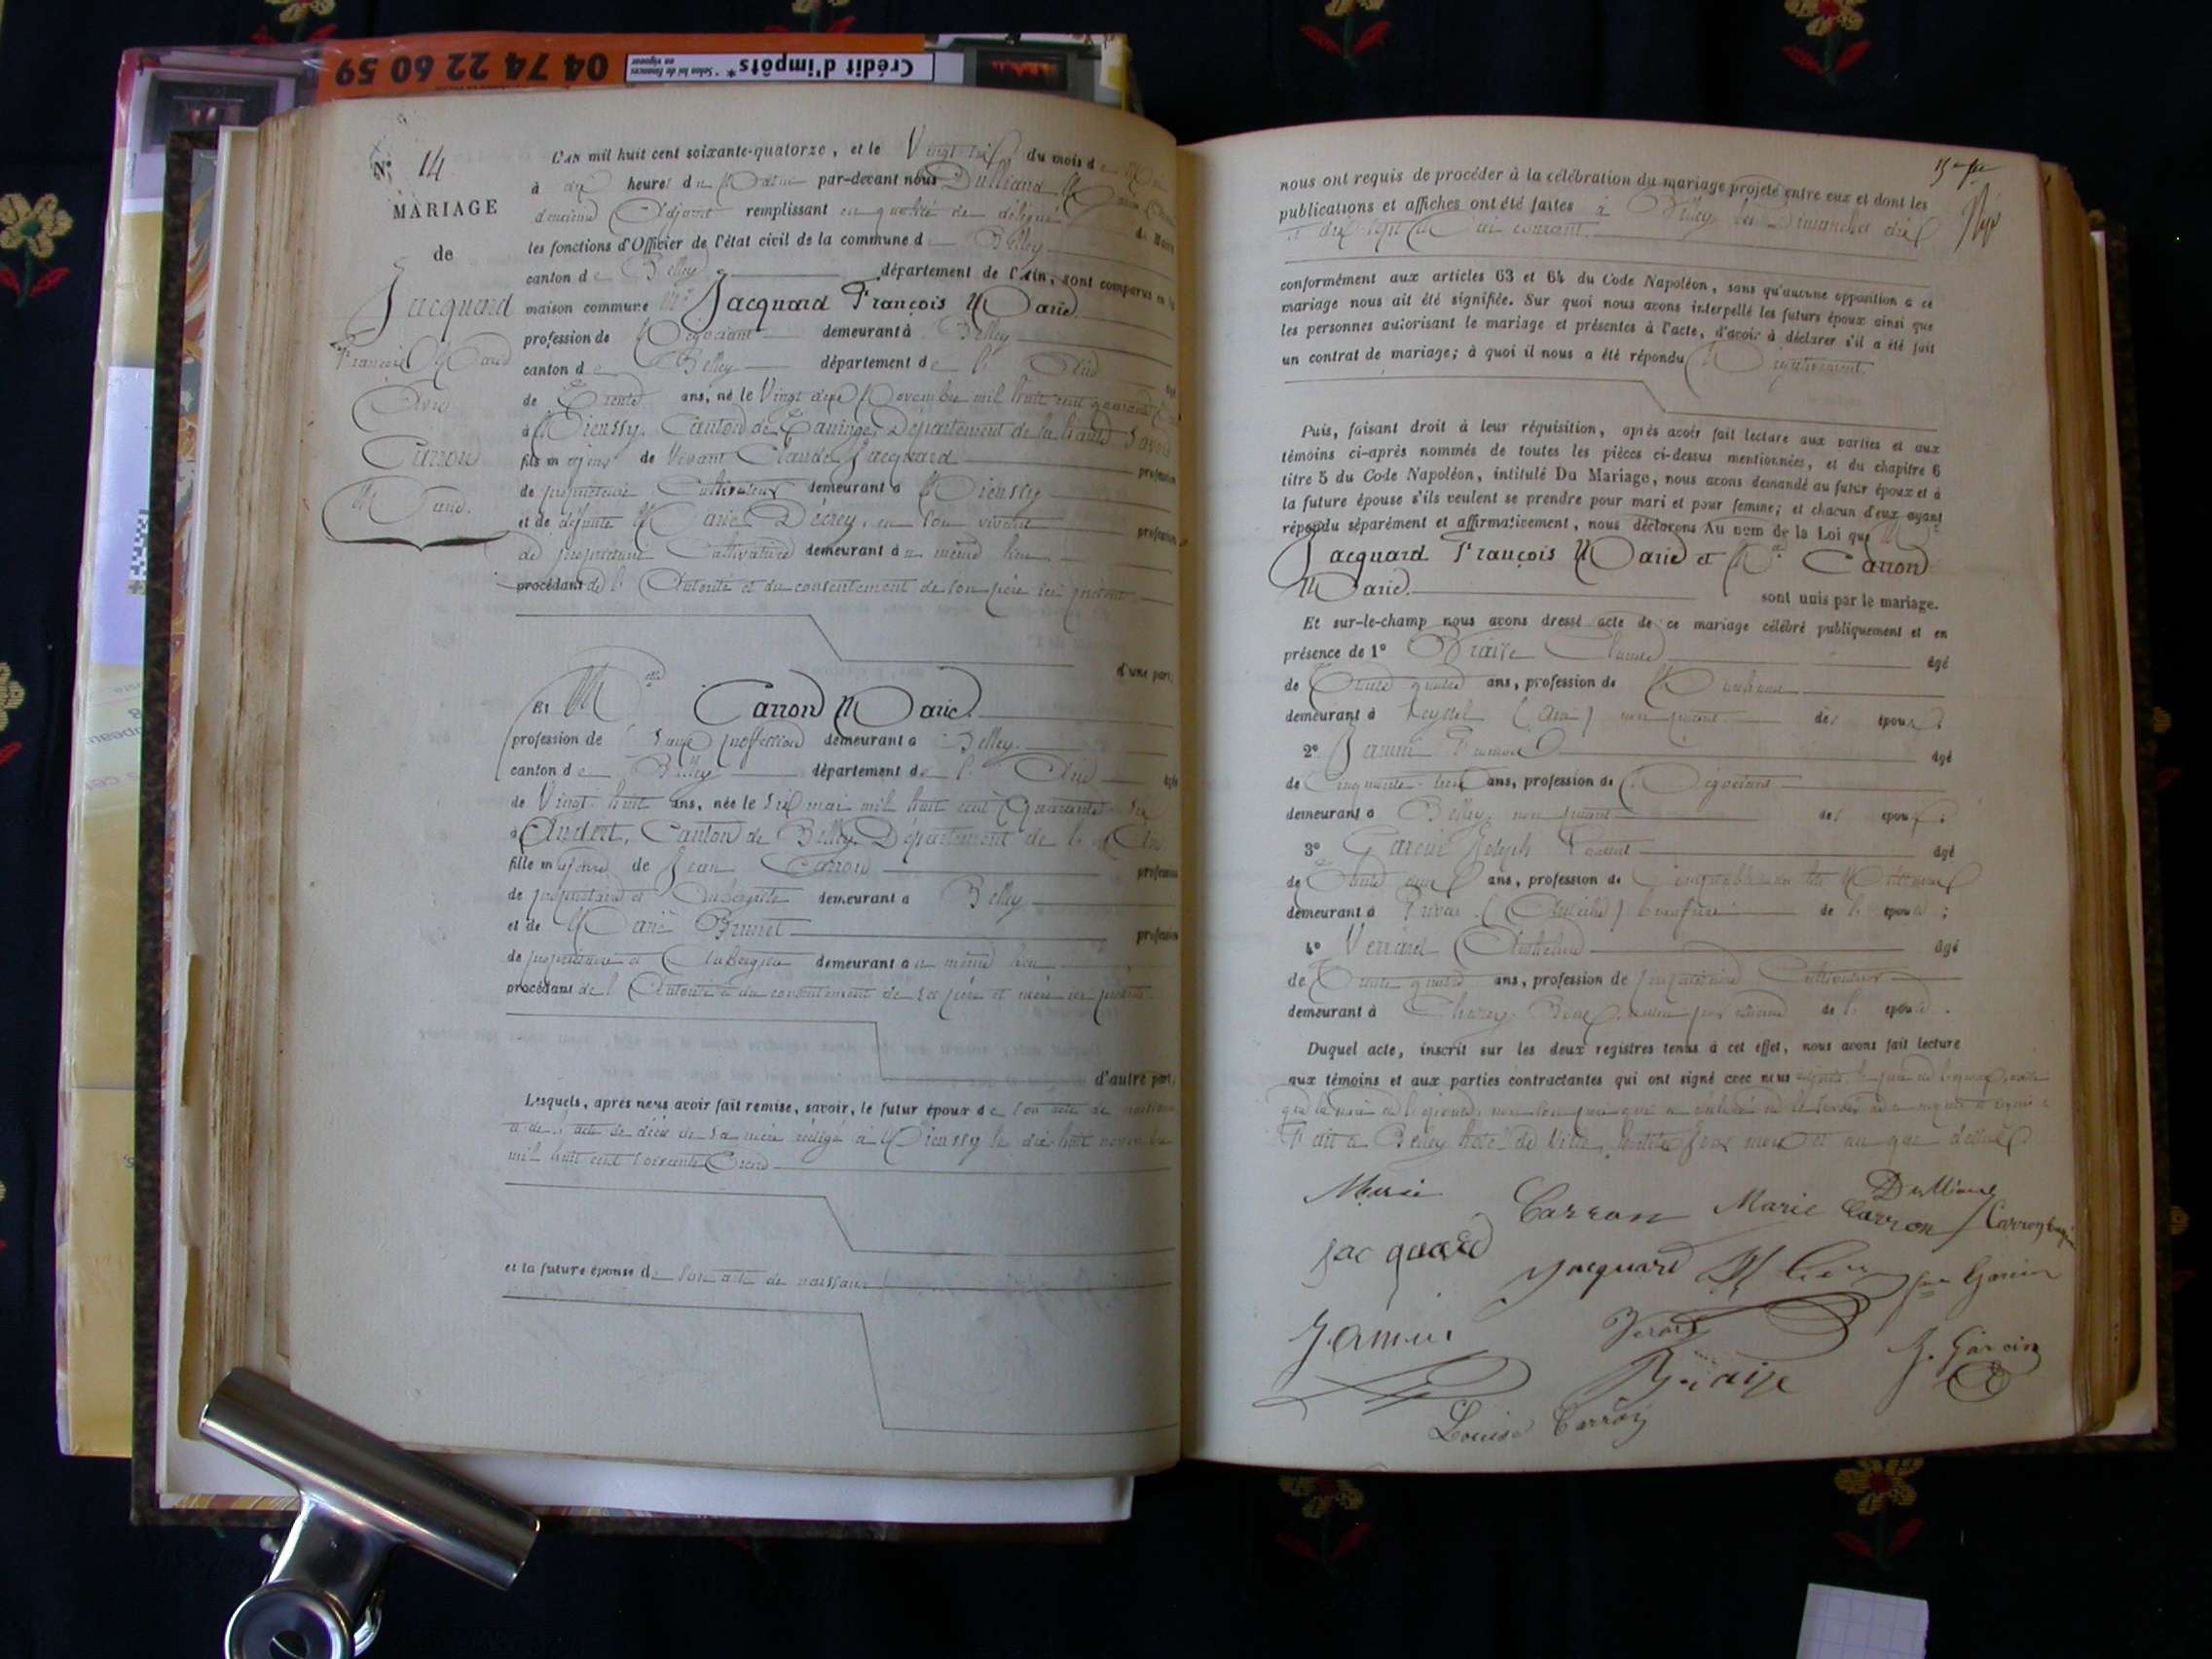 04 74 22 60 59
Crédit d'impôts*
* Selon loi de finances
en vigueur
N° 14
MARIAGE
de
Jacquard
François Marie
Avec
Carron
Marie.
L'AN mil huit cent soixante-quatorze, et le Vingt six du mois de Mai
à dix heures du Matin par-devant nous Dulliand
d'ancien Adjoint remplissant en qualité de délégué du Maire
les fonctions d'Officier de l'état civil de la commune de Belley
canton de Belley département de l'Ain, sont comparus en la
maison commune Mr Jacquard François Marie
profession de Négociant demeurant à Belley
canton de Belley département de l' Ain âgé
de Trente ans, né le Vingt deux Novembre mil huit cent quarante
à Mieussy, Canton de Taninges, Département de la haute Savoie
fils majeur de Vivant Claude Jacquard profession
de propriétaire Cultivateur demeurant à Mieussy
et de défunte Marie Décrey, en son vivant profession
de propriétaire Cultivatrice demeurant au même lieu
procédant de l' Autorité et du consentement de son père ici présent
d'une part,
Et Melle Carron Marie.
profession de Sans profession demeurant à Belley.
canton de Belley département de l' Ain âgée
de Vingt-huit ans, née le six mai mil huit cent Quarante six
à Andert, Canton de Belley, Département de l' Ain
fille majeure de Jean Carron profession
de propriétaire et Aubergiste demeurant à Belley
et de Marie Brunet profession
de propriétaire et Aubergiste demeurant au même lieu
procédant de l' Autorité et du consentement de ses père et mère ici présents
d'autre part,
Lesquels, après nous avoir fait remise, savoir, le futur époux de son acte de naissance
et de l'acte de décès de sa mère rédigé à Mieussy le dix-huit novembre
mil huit cent soixante
et la future épouse de son acte de naissance
nous ont requis de procéder à la célébration du mariage projeté entre eux et dont les
publications et affiches ont été faites à Belley les Dimanches dix
et dix sept Mai courant.
conformément aux articles 63 et 64 du Code Napoléon, sans qu'aucune opposition à ce
mariage nous ait été signifiée. Sur quoi nous avons interpellé les futurs époux ainsi que
les personnes autorisant le mariage et présentes à l'acte, d'avoir à déclarer s'il a été fait
un contrat de mariage; à quoi il nous a été répondu Négativement.
Puis, faisant droit à leur réquisition, après avoir fait lecture aux parties et aux
témoins ci-après nommés de toutes les pièces ci-dessus mentionnées, et du chapitre 6
titre 5 du Code Napoléon, intitulé Du Mariage, nous avons demandé au futur époux et à
la future épouse s'ils veulent se prendre pour mari et pour femme; et chacun d'eux ayant
répondu séparément et affirmativement, nous déclarons Au nom de la Loi que Mr
Jacquard François Marie et Melle Carron
Marie. sont unis par le mariage.
Et sur-le-champ nous avons dressé acte de ce mariage célébré publiquement et en
présence de 1° Briaise Claude âgé
de Trente quatre ans, profession de
demeurant à Seyssel (Ain) non parent des époux;
2° Jamin âgé
de Cinquante ans, profession de Négociant
demeurant à Belley, non parent des époux;
3° Garcin Joseph âgé
de Trente ans, profession de
demeurant à Privas (Ardèche) beau frère de l' épouse;
4° Verrard Anthelme âgé
de Trente quatre ans, profession de propriétaire Cultivateur
demeurant à de l' épouse.
Duquel acte, inscrit sur les deux registres tenus à cet effet, nous avons fait lecture
aux témoins et aux parties contractantes qui ont signé avec nous
Fait à Belley hôtel de Ville, les dits jour mois et an que dessus.
Carron Marie Carron
Dulliand
Jacquard
Jacquard
Garcin
Jamin
Briaise
J. Garcin
Louise Carron